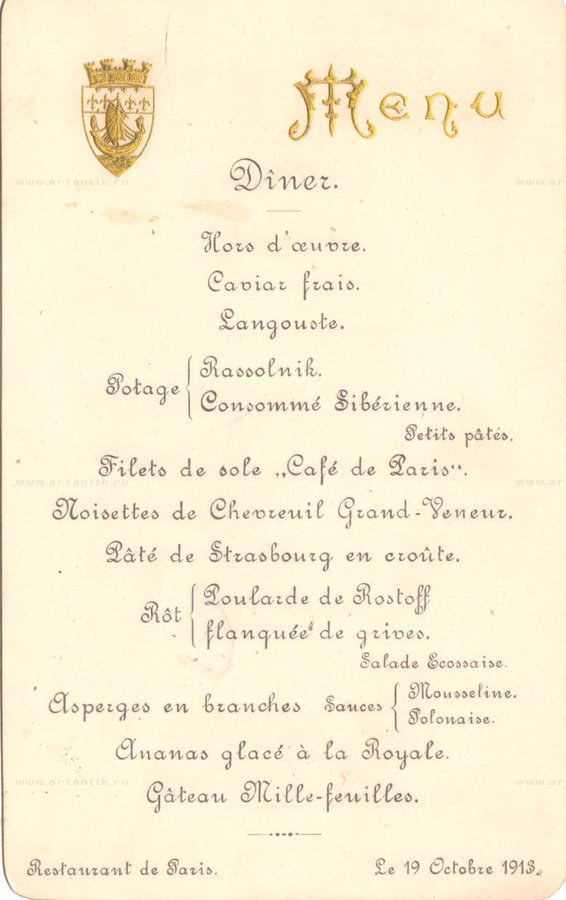 Menu
Dîner.
Hors d'œuvre.
Caviar frais.
Langouste.
Potage
Rassolnik.
Consommé Sibérienne.
Petits pâtés.
Filets de sole „Café de Paris“.
Noisettes de Chevreuil Grand-Veneur.
Pâté de Strasbourg en croûte.
Rôt
Poularde de Rostoff
flanquée de grives.
Salade Ecossaise.
Asperges en branches Sauces
Mousseline.
Polonaise.
Ananas glacé à la Royale.
Gâteau Mille-feuilles.
Restaurant de Paris. Le 19 Octobre 1913.
www.artantik.ru